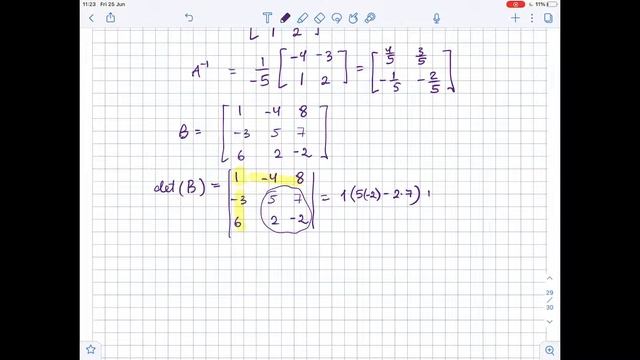 11:23 Fri 25 Jun 11%
1 2
A⁻¹ = 1/-5 [ -4 -3 ; 1 2 ] = [ 4/5 3/5 ; -1/5 -2/5 ]
B = [ 1 -4 8
-3 5 7
6 2 -2 ]
det(B) = | 1 -4 8
-3 5 7 = 1(5(-2) - 2·7)
6 2 -2 |
29
30